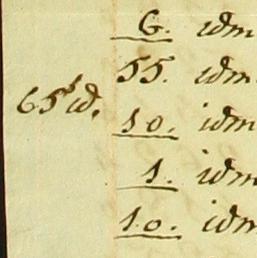 6. idm
55. idm
65 id.
10. idm
1. idm
10. idm